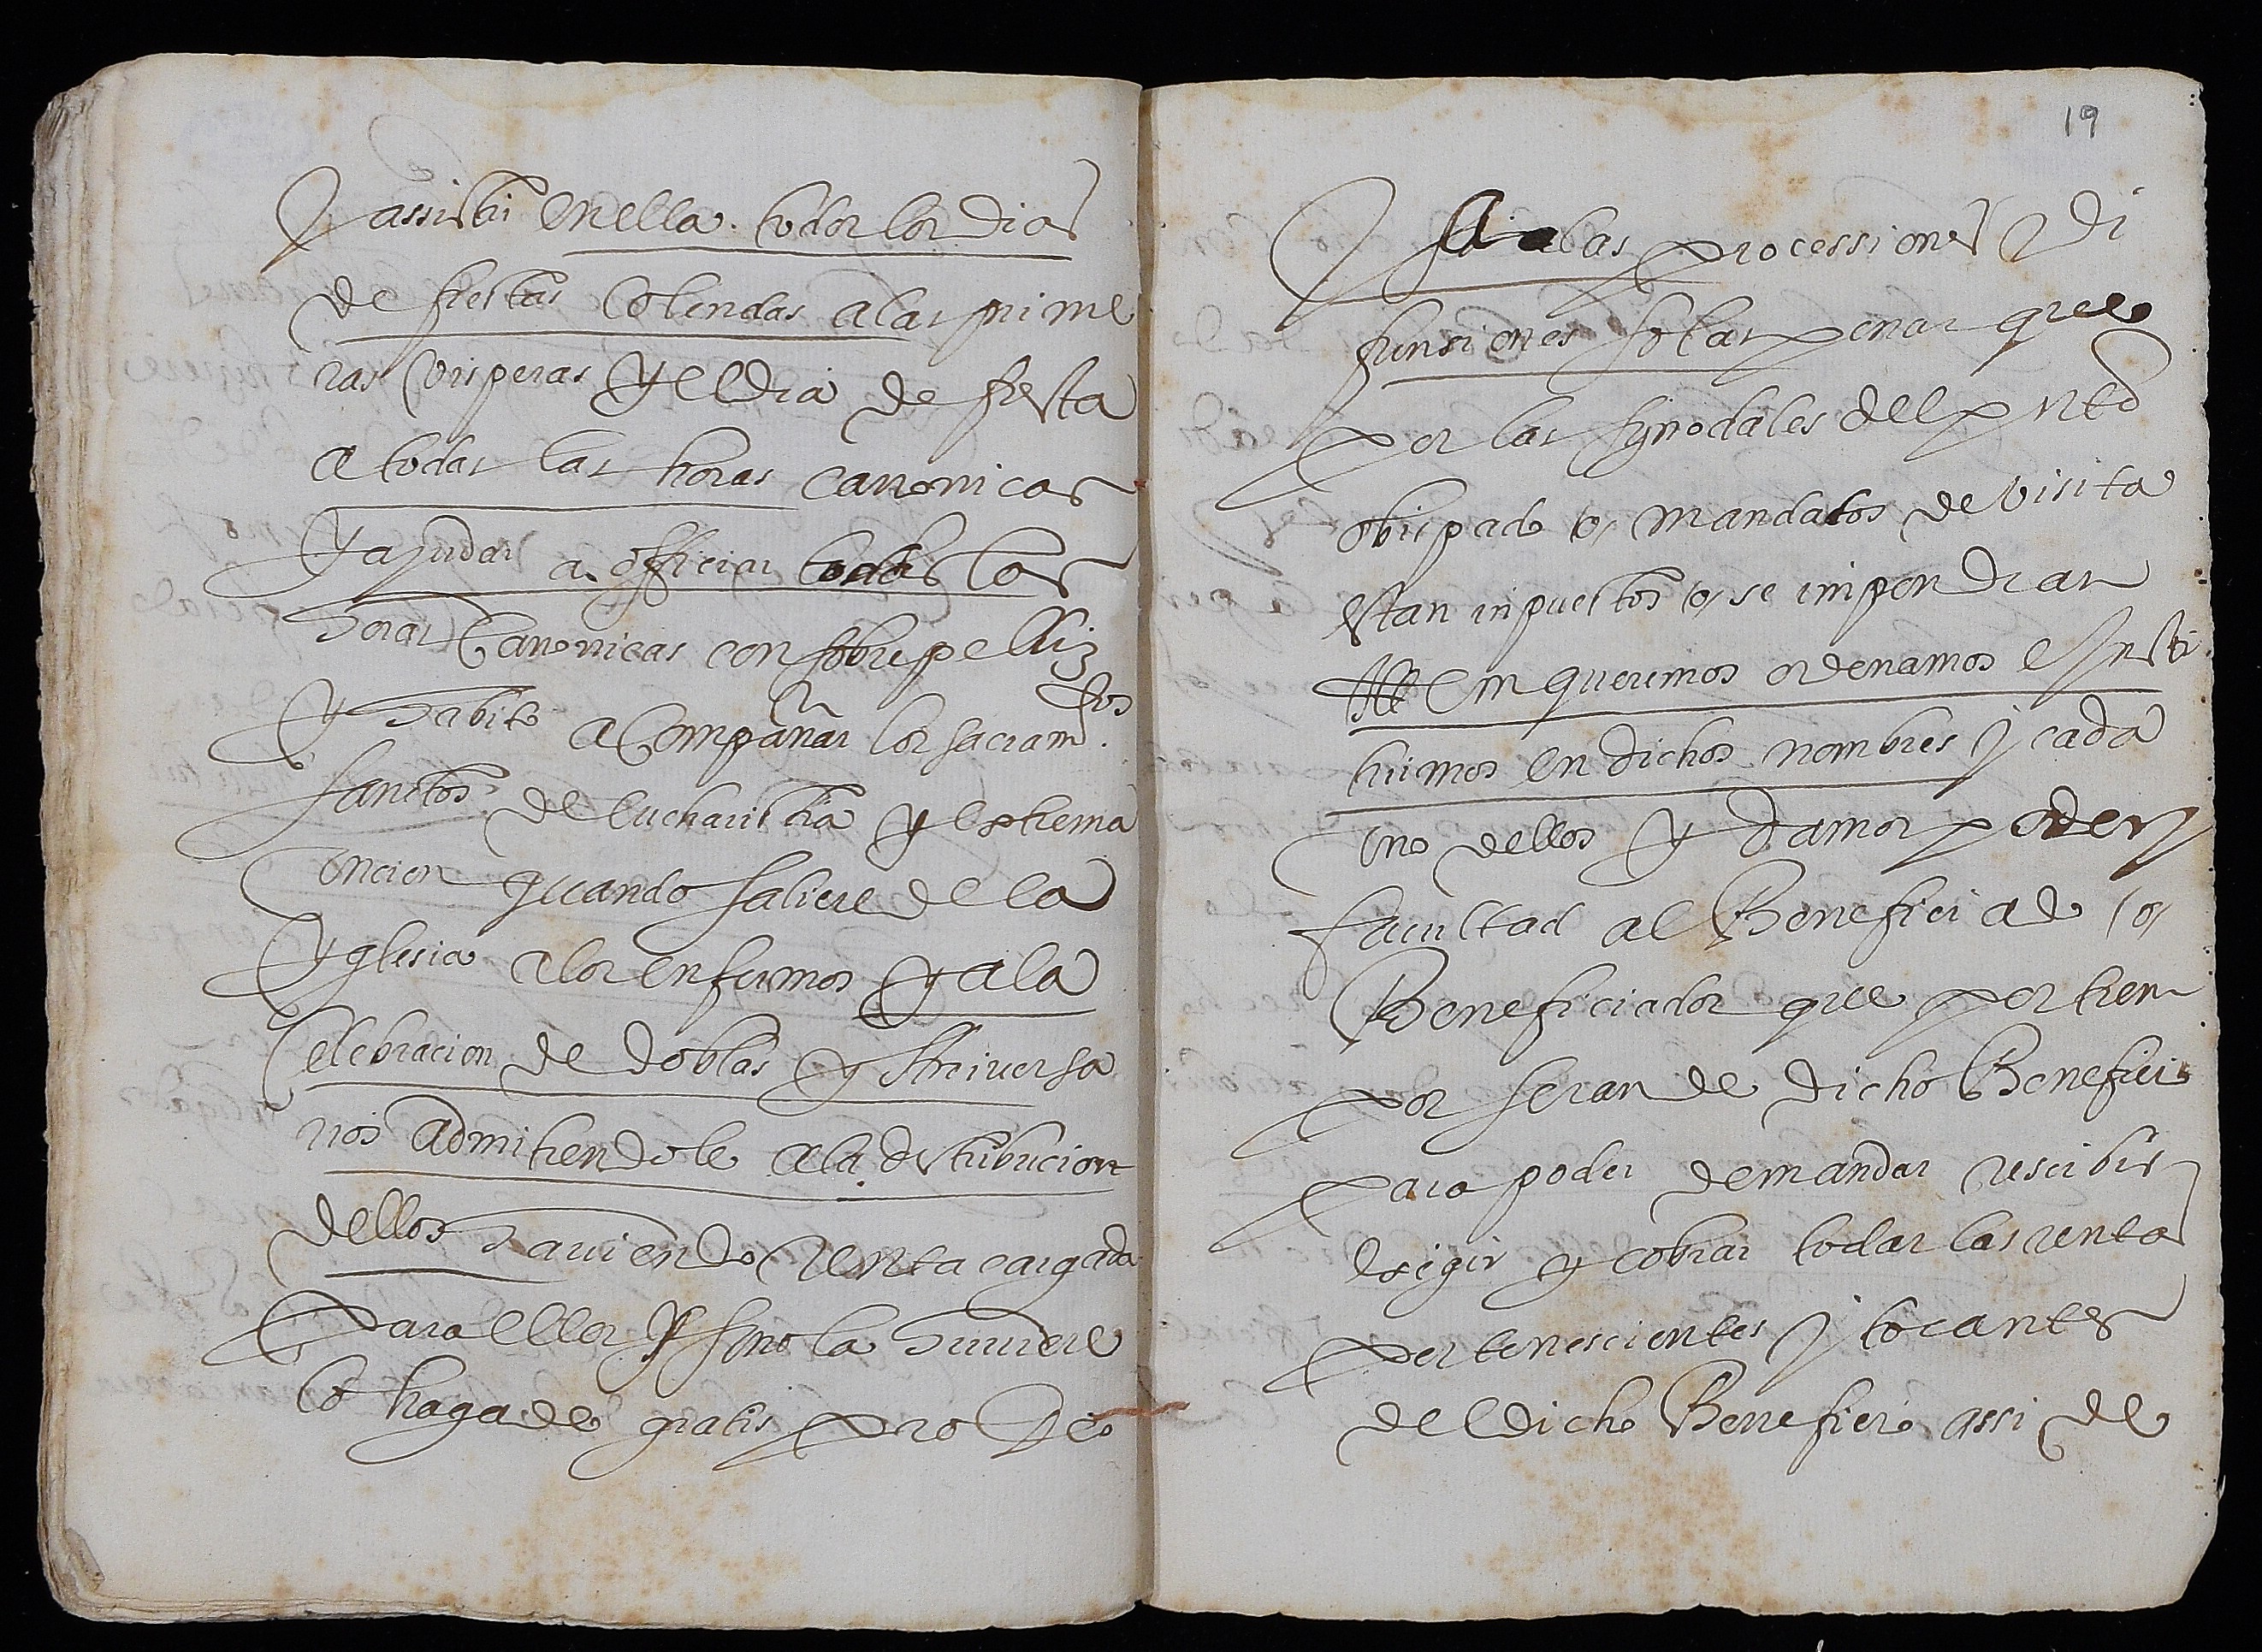 y assisti en ella todos los dias
de fiestas Colendas a las prime
ras visperas y el dia de fiesta
a todas las horas canonicas
y ajudar a officiar todas las
horas Canonicas con sobrepelliz
y habito aCompañar los sacram.tos
santos de eucharistia y extrema
uncion quando saliere de la
yglesia a los enfermos y a la
Celebracion de doblas y Aniversa
rios admitiendole a la distribucion
dellos haviendo renta cargada
para ellos y sino la huviere
lo haga de gratis pro Deo
19
y a las processiones y di
funsiones so las penas que
por las synodales del pnte
obispado o mandatos de visita
estan inpuestos o se impondran
Item queremos ordenamos e Insti
tuimos en dichos nombres y cada
uno dellos y damos poder y
facultad al Beneficiado o
Beneficiados que por tiem
por seran de dicho Beneficio
para poder demandar rescibir
exigir y cobrar todas las rentas
pertenescientes y tocantes
del dicho Beneficio assi de